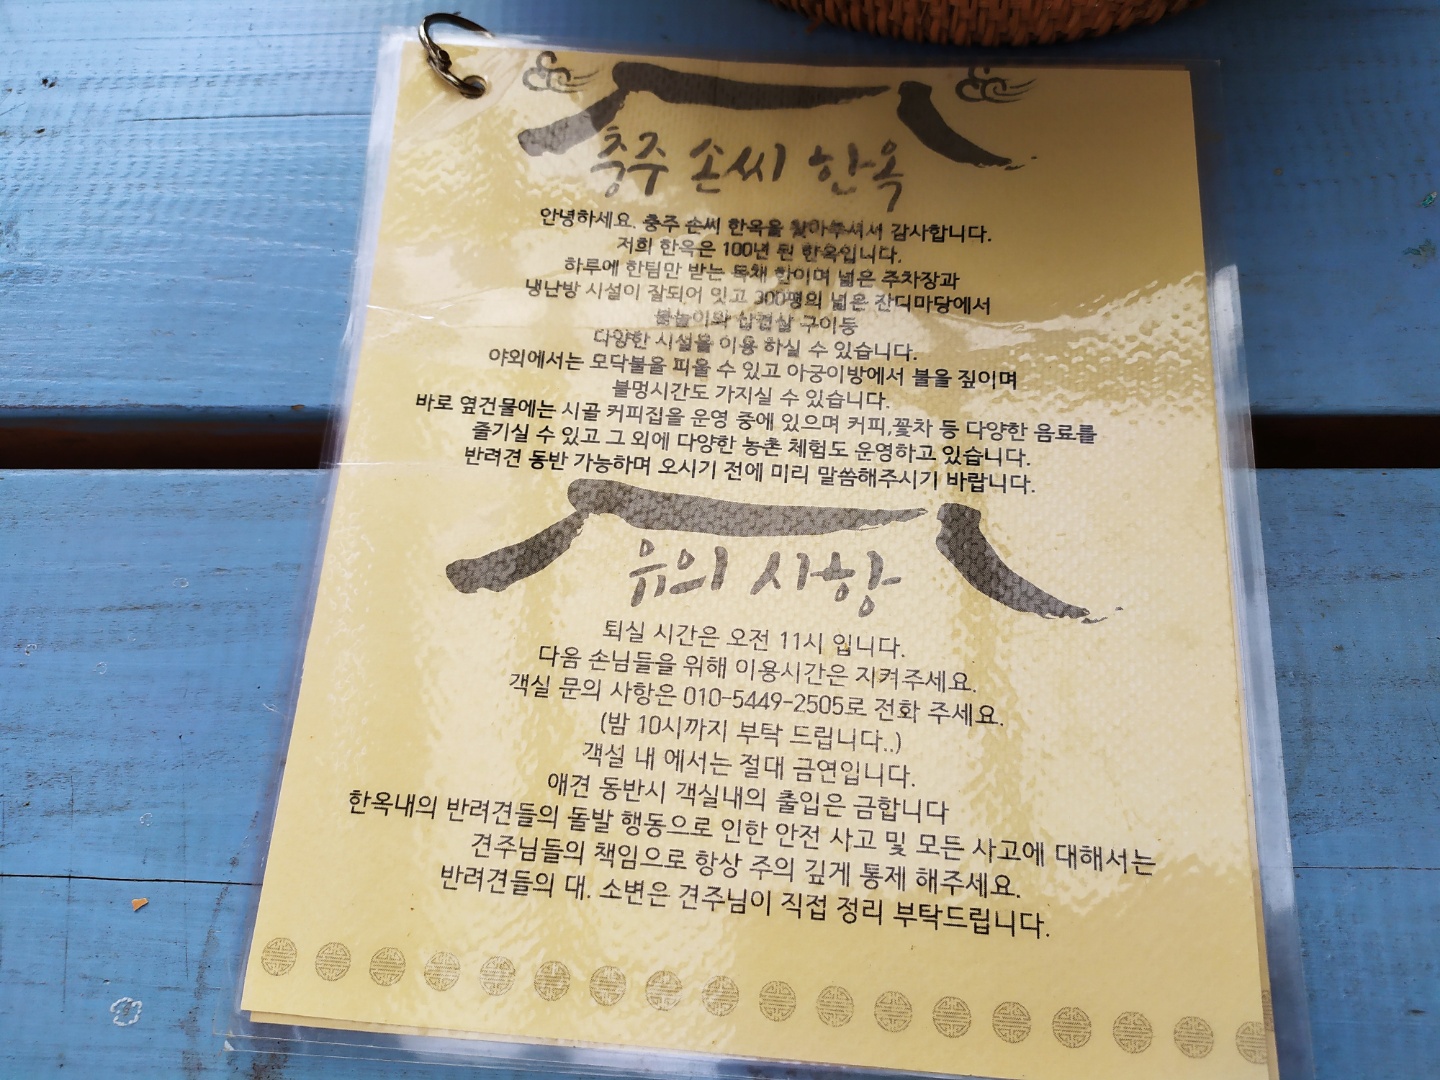 충주 손씨 한옥
안녕하세요. 충주 손씨 한옥을 찾아주셔서 감사합니다.
저희 한옥은 100년 된 한옥입니다.
하루에 한팀만 받는 독채 형이며 넓은 주차장과
냉난방 시설이 잘되어 잇고 300평의 넓은 잔디마당에서
물놀이와 삼겹살 구이등
다양한 시설을 이용 하실 수 있습니다.
야외에서는 모닥불을 피울 수 있고 아궁이방에서 불을 짚이며
불멍시간도 가지실 수 있습니다.
바로 옆건물에는 시골 커피집을 운영 중에 있으며 커피,꽃차 등 다양한 음료를
즐기실 수 있고 그 외에 다양한 농촌 체험도 운영하고 있습니다.
반려견 동반 가능하며 오시기 전에 미리 말씀해주시기 바랍니다.
유의 사항
퇴실 시간은 오전 11시 입니다.
다음 손님들을 위해 이용시간은 지켜주세요.
객실 문의 사항은 010-5449-2505로 전화 주세요.
(밤 10시까지 부탁 드립니다..)
객설 내 에서는 절대 금연입니다.
애견 동반시 객실내의 출입은 금합니다
한옥내의 반려견들의 돌발 행동으로 인한 안전 사고 및 모든 사고에 대해서는
견주님들의 책임으로 항상 주의 깊게 통제 해주세요.
반려견들의 대. 소변은 견주님이 직접 정리 부탁드립니다.